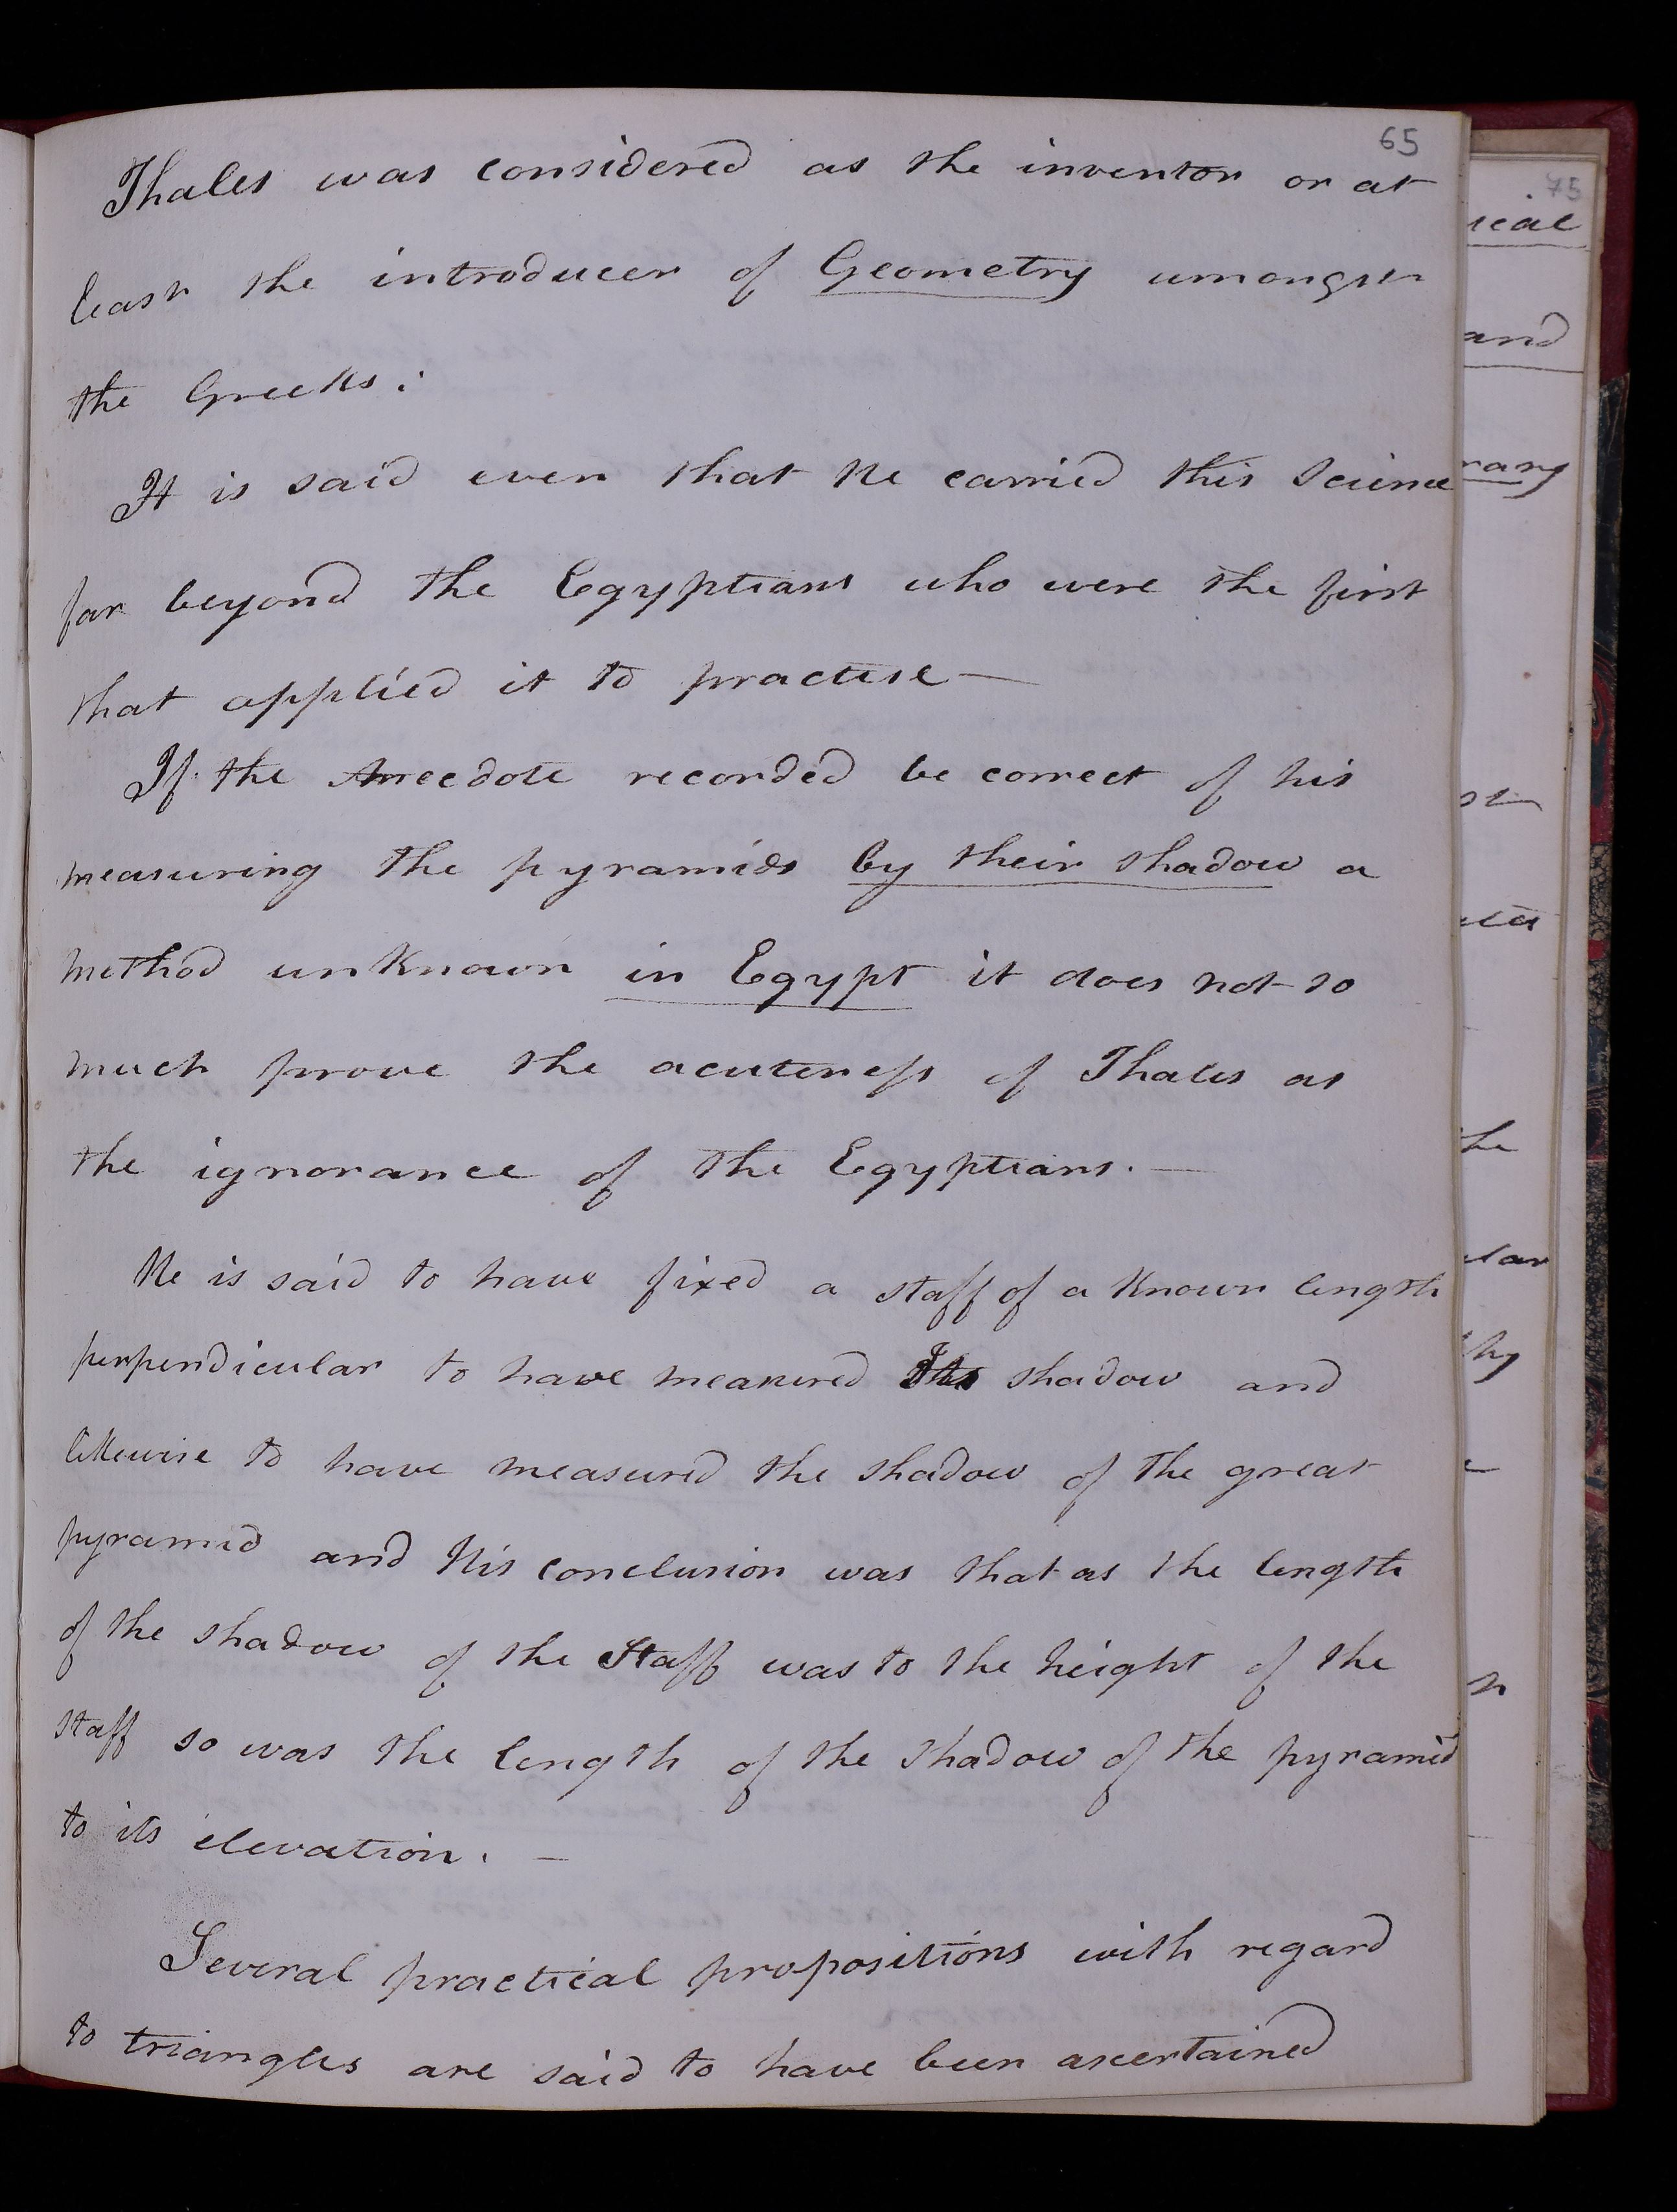 65
Thales was considered as the inventor or at
least the introducer of Geometry amongst
the Greeks:
It is said even that He carried this Science
far beyond the Egyptians who were the first
that applied it to practise —
If the Anecdote recorded be correct of his
measuring the pyramids by their shadow a
method unknown in Egypt it does not so
much prove the acuteness of Thales as
the ignorance of the Egyptians. —
He is said to have fixed a staff of a known length
perpendicular to have measured Its shadow and
likewise to have measured the shadow of the great
pyramid and His conclusion was that as the length
of the shadow of the Staff was to the height of the
staff so was the length of the shadow of the pyramid
to its elevation. —
Several practical propositions with regard
to triangles are said to have been ascertained
75
and